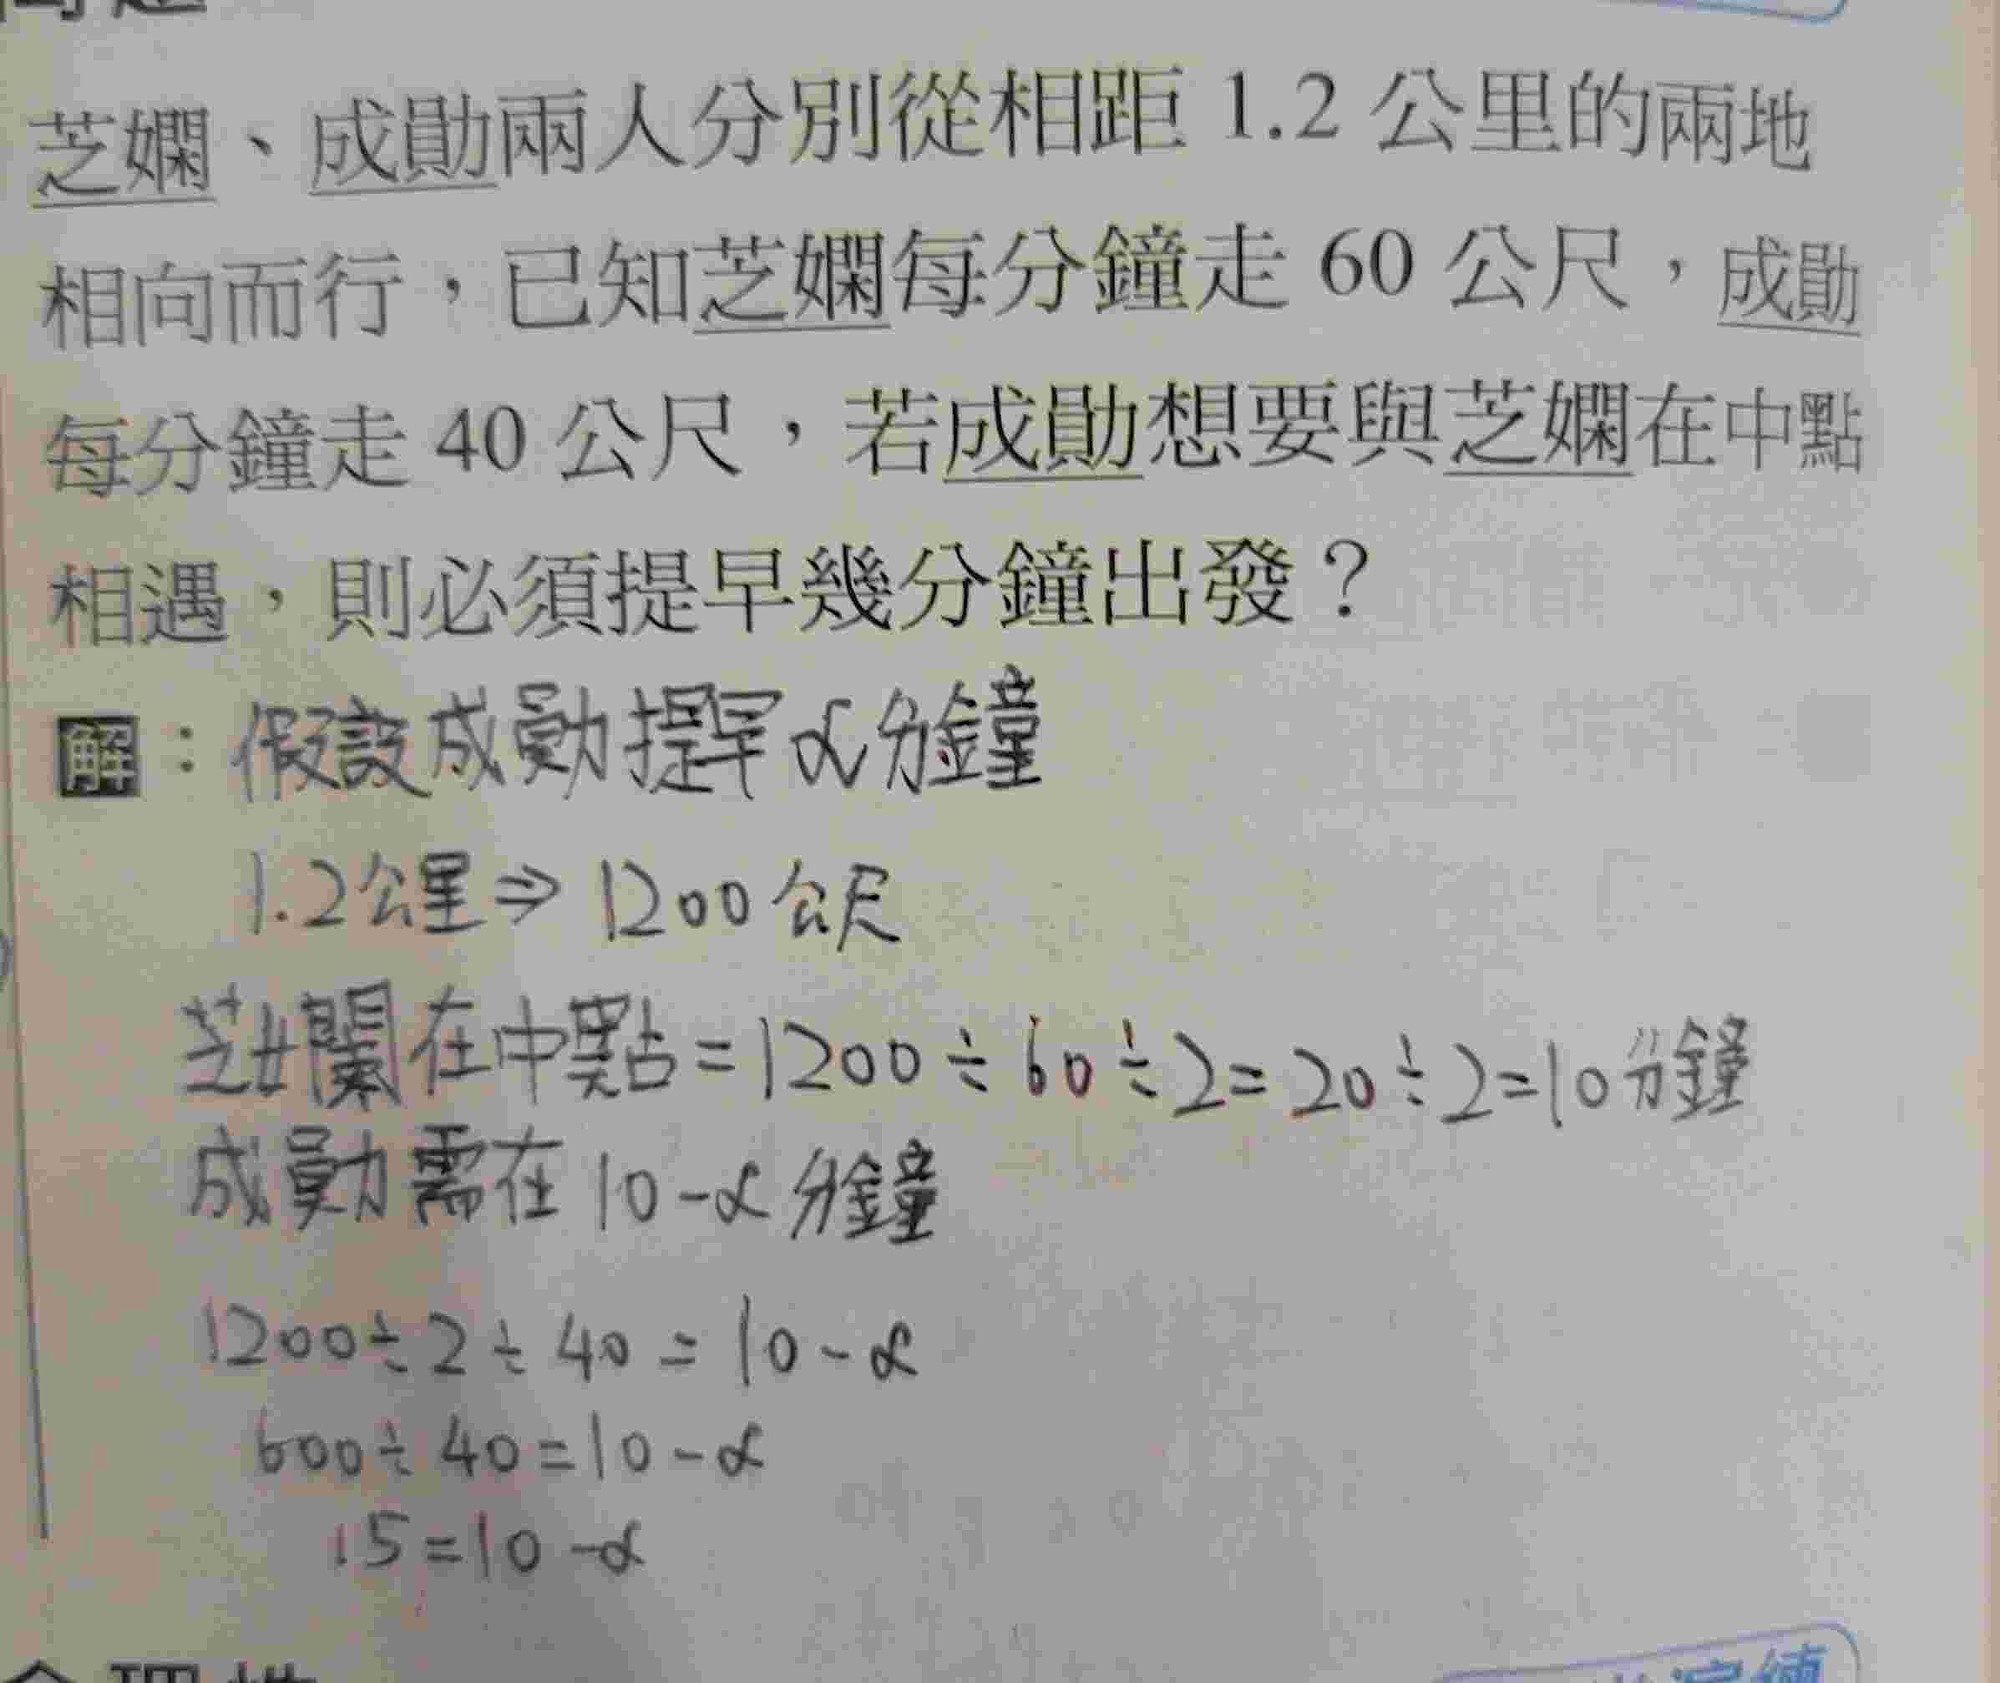 芝嫻、成勛兩人分別從相距 1.2 公里的兩地
相向而行，已知芝嫻每分鐘走 60 公尺，成勛
每分鐘走 40 公尺，若成勛想要與芝嫻在中點
相遇，則必須提早幾分鐘出發？
解：假設成勛提早α分鐘
1.2公里⇒1200公尺
芝嫻在中點=1200÷60÷2=20÷2=10分鐘
成勛需在10-α分鐘
1200÷2÷40=10-α
600÷40=10-α
15=10-α